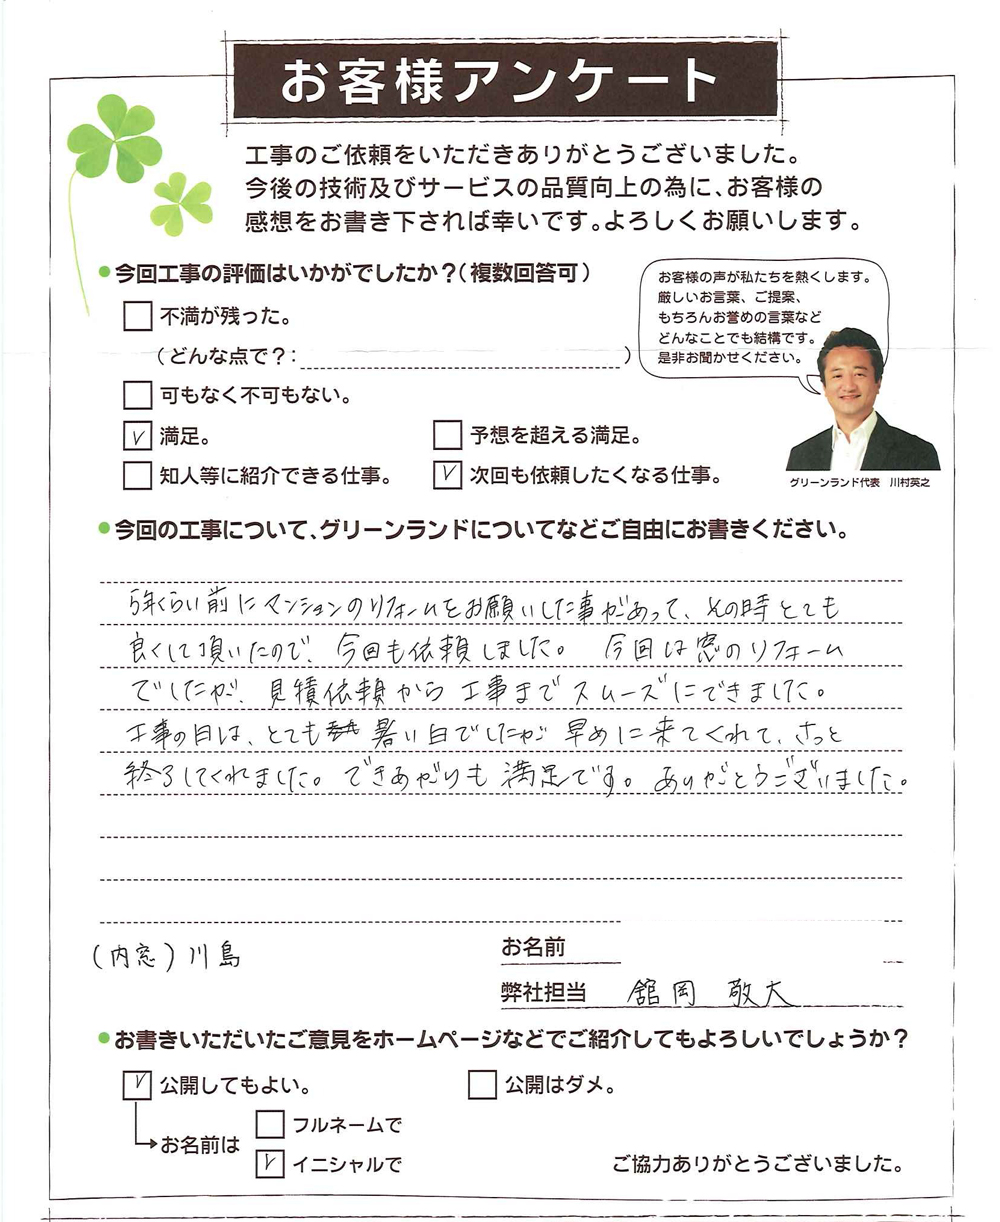 お客様アンケート
工事のご依頼をいただきありがとうございました。
今後の技術及びサービスの品質向上の為に、お客様の
感想をお書き下されば幸いです。よろしくお願いします。
●今回工事の評価はいかがでしたか？（複数回答可）
お客様の声が私たちを熱くします。
厳しいお言葉、ご提案、
もちろんお誉めの言葉など
どんなことでも結構です。
是非お聞かせください。
不満が残った。
（どんな点で？：　）
可もなく不可もない。
満足。　予想を超える満足。
知人等に紹介できる仕事。　次回も依頼したくなる仕事。
グリーンランド代表　川村英之
●今回の工事について、グリーンランドについてなどご自由にお書きください。
5年くらい前にマンションのリフォームをお願いした事があって、その時とても
良くして頂いたので、今回も依頼しました。　今回は窓のリフォーム
でしたが、見積依頼から工事までスムーズにできました。
工事の日は、とても 暑い日でしたが 早めに来てくれて、さっと
終了してくれました。できあがりも満足です。ありがとうございました。
（内窓）川島
お名前
弊社担当　舘岡　敬大
●お書きいただいたご意見をホームページなどでご紹介してもよろしいでしょうか？
公開してもよい。　公開はダメ。
お名前は
フルネームで
イニシャルで
ご協力ありがとうございました。